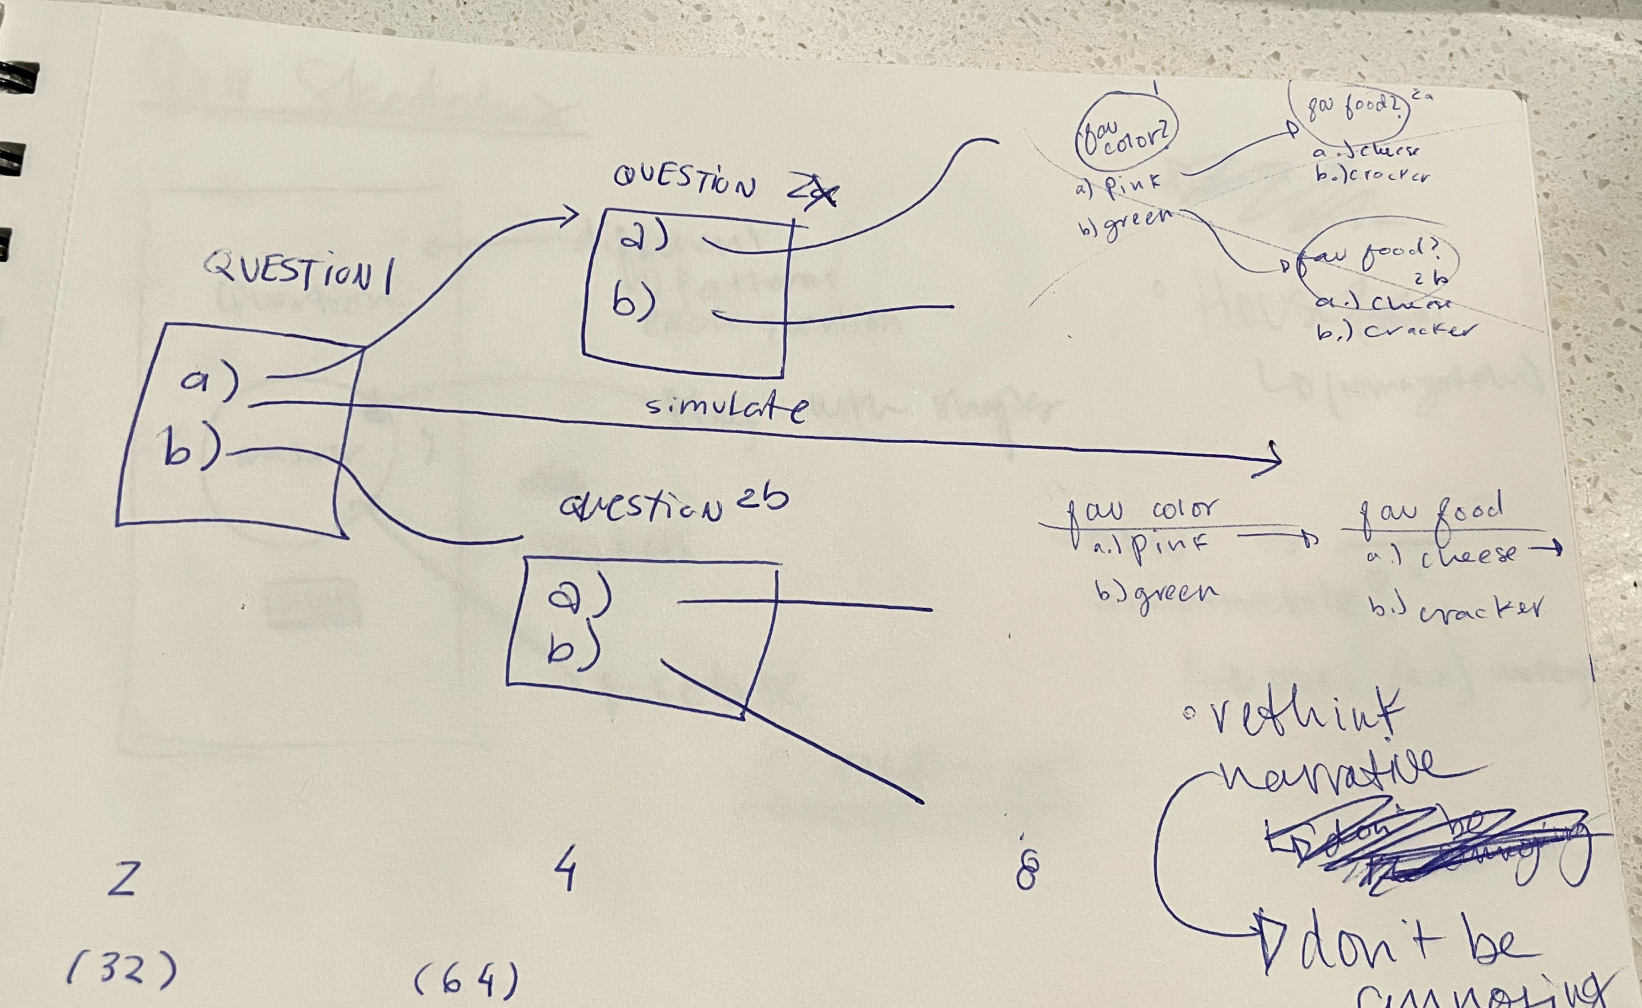 QUESTION 1
a)
b)
QUESTION 2
a)
b)
simulate
QUESTION 2b
a)
b)
2
4
8
(32)
(64)
1
fav
color?
a) pink
b) green
fav food? 2a
a.) cheese
b.) cracker
fav food?
2b
a.) cheese
b.) cracker
fav color
a.) pink
b) green
fav food
a.) cheese
b.) cracker
rethink
narrative
don't be
annoying
don't be
annoying